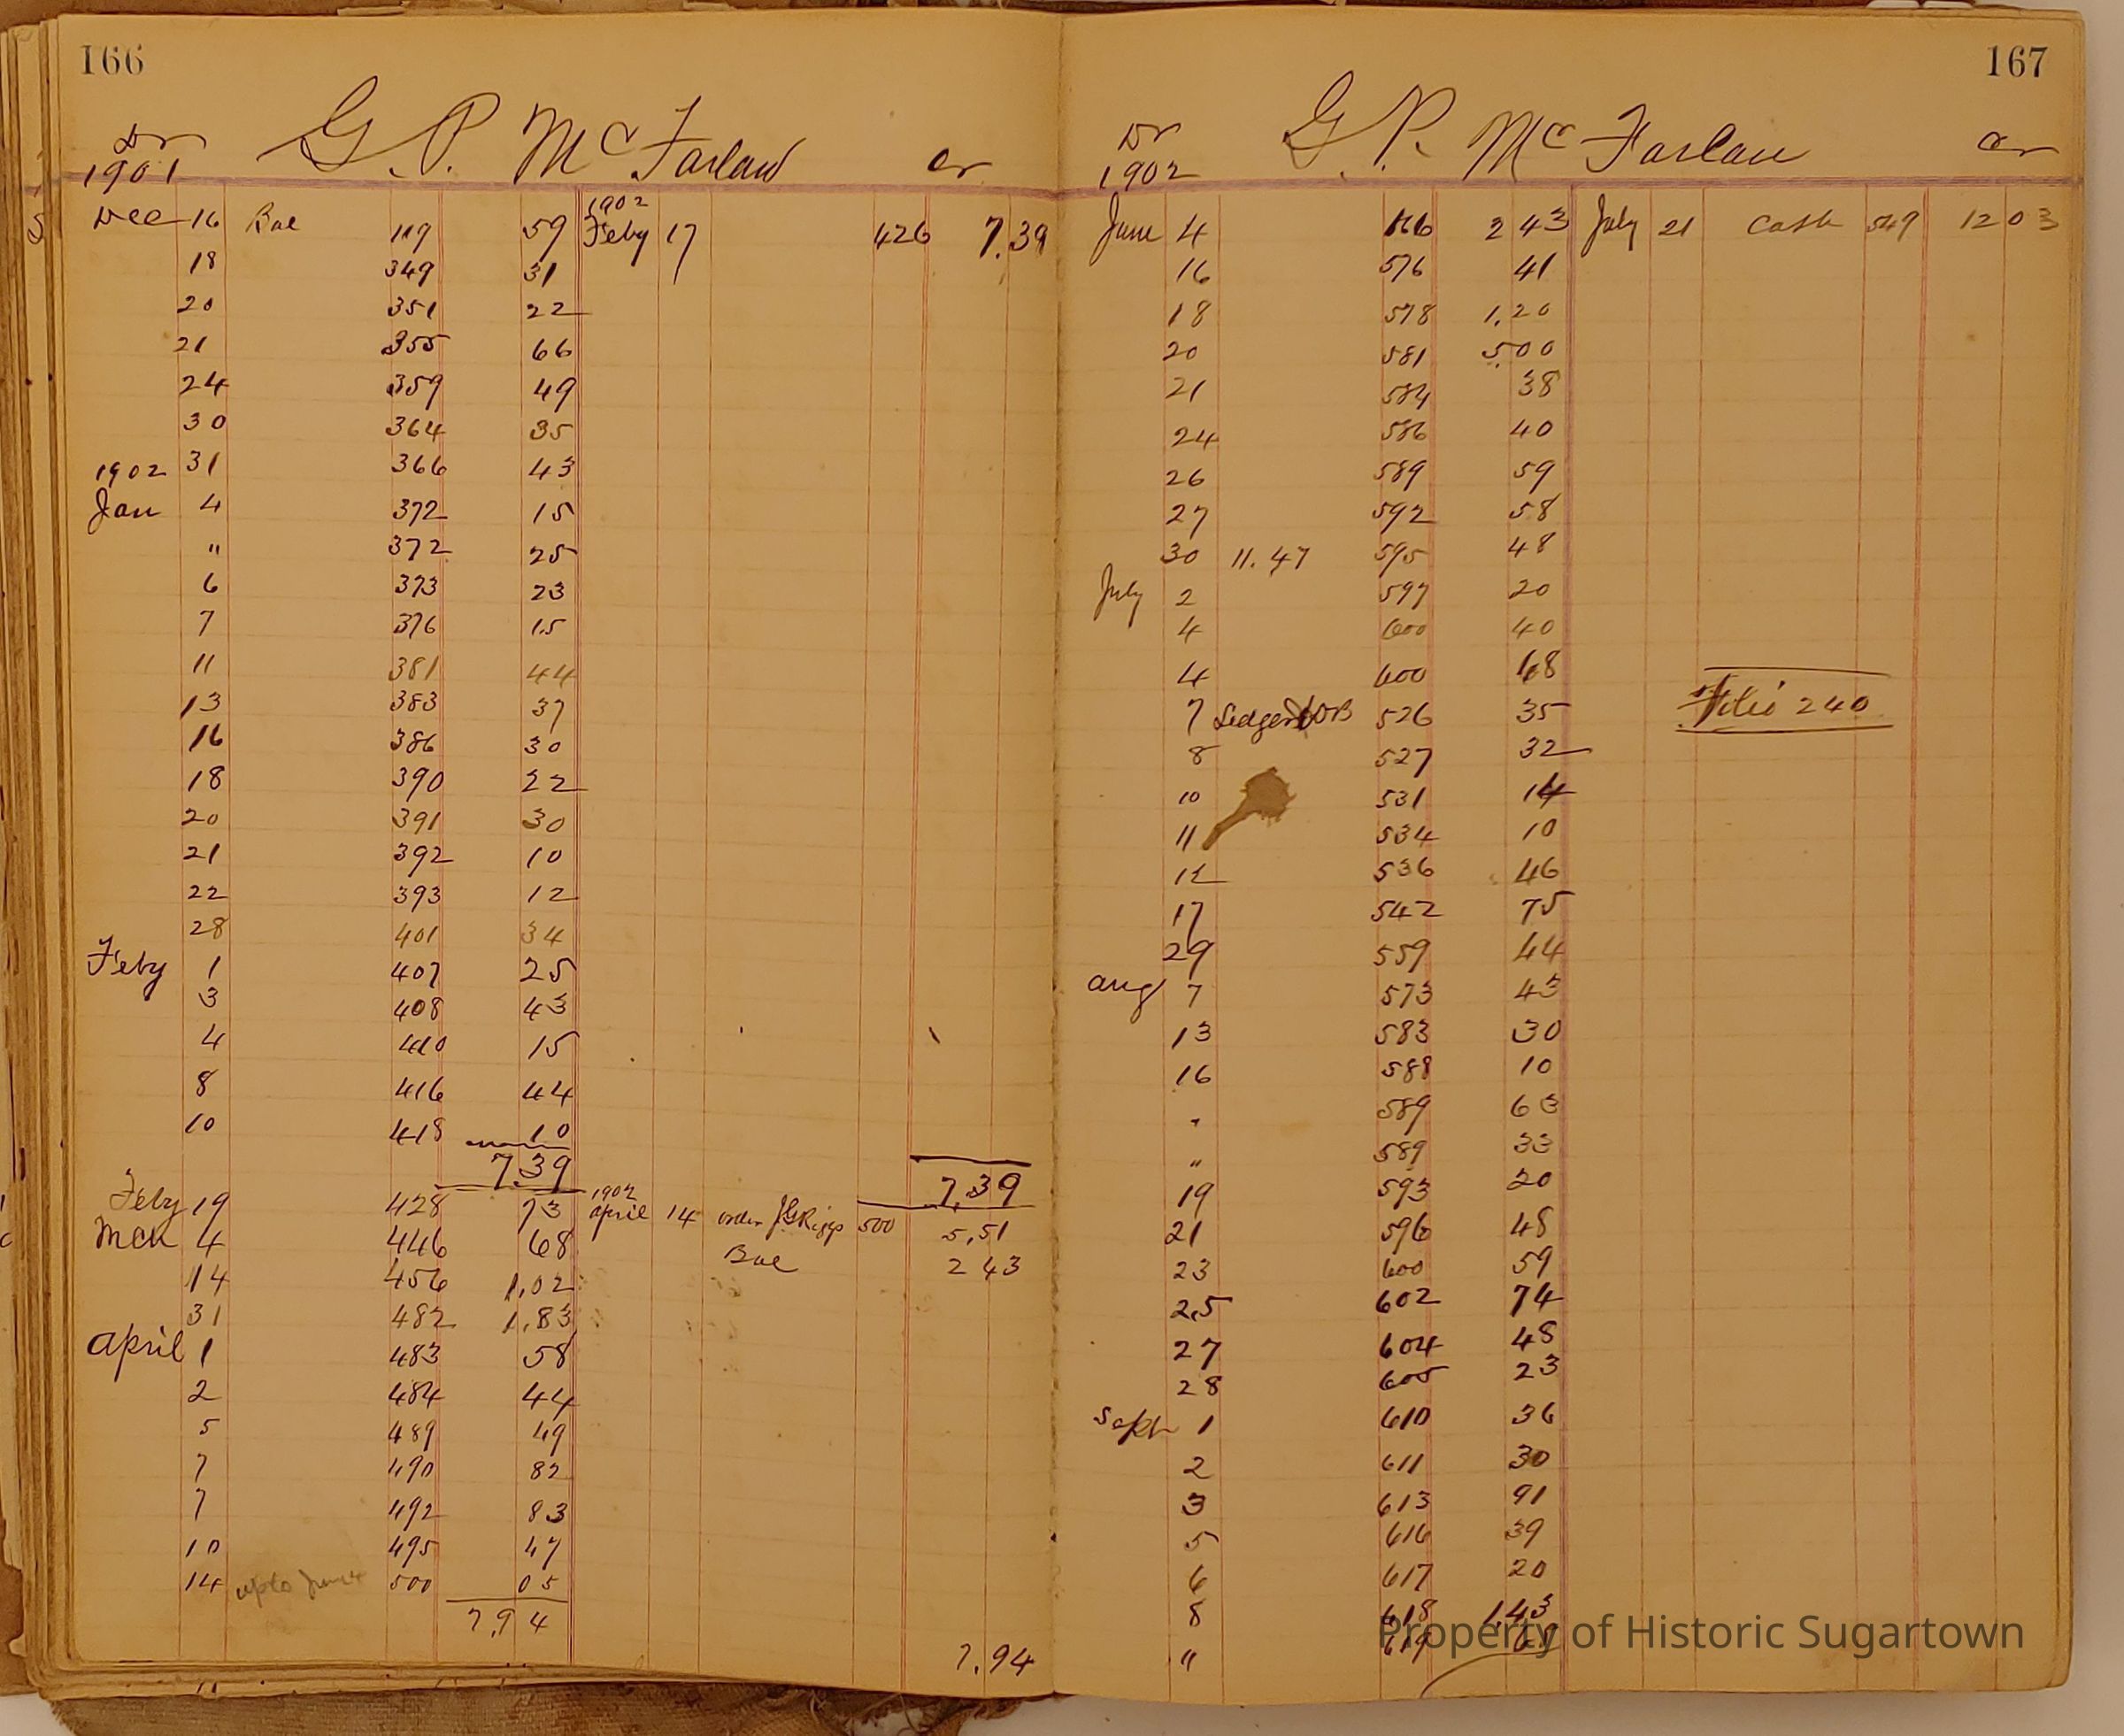 166
G. P. McFarlan
Dr
Cr
1901
Dec 16 Bal 119 59 1902 Feby 17 426 7.39
18 349 31
20 351 22
21 355 66
24 359 49
30 364 35
31 366 43
1902
Jan 4 372 15
" 372 25
6 373 23
7 376 15
11 381 44
13 383 37
16 386 30
18 390 22
20 391 30
21 392 10
22 393 12
28 401 34
Feby 1 407 25
3 408 43
4 410 15
8 416 44
10 418 10
7.39 7.39
Feby 19 428 73 1902 April 14 order J G Riggs 500 5.51
Mch 4 446 68 Bal 2 43
14 456 1.02
31 482 1.83
April 1 483 58
2 484 44
5 489 49
7 490 82
7 492 83
10 495 47
14 up to June 4 500 05
7.94
7.94
167
G. P. McFarlan
Dr
Cr
1902
June 4 166 2 43 July 21 Cash 549 12 03
16 576 41
18 578 1.20
20 581 5.00
21 584 38
24 586 40
26 589 59
27 592 58
30 11.47 595 48
July 2 597 20
4 600 40
4 600 68
7 Ledger DB 526 35
Folio 240
8 527 32
10 531 14
11 534 10
12 536 46
17 542 75
29 559 44
Aug 7 573 43
13 583 30
16 588 10
" 589 63
" 589 33
19 593 20
21 596 48
23 600 59
25 602 74
27 604 48
28 605 23
Sept 1 610 36
2 611 30
3 613 91
5 616 39
6 617 20
8 618 1.43
" 619
Property of Historic Sugartown